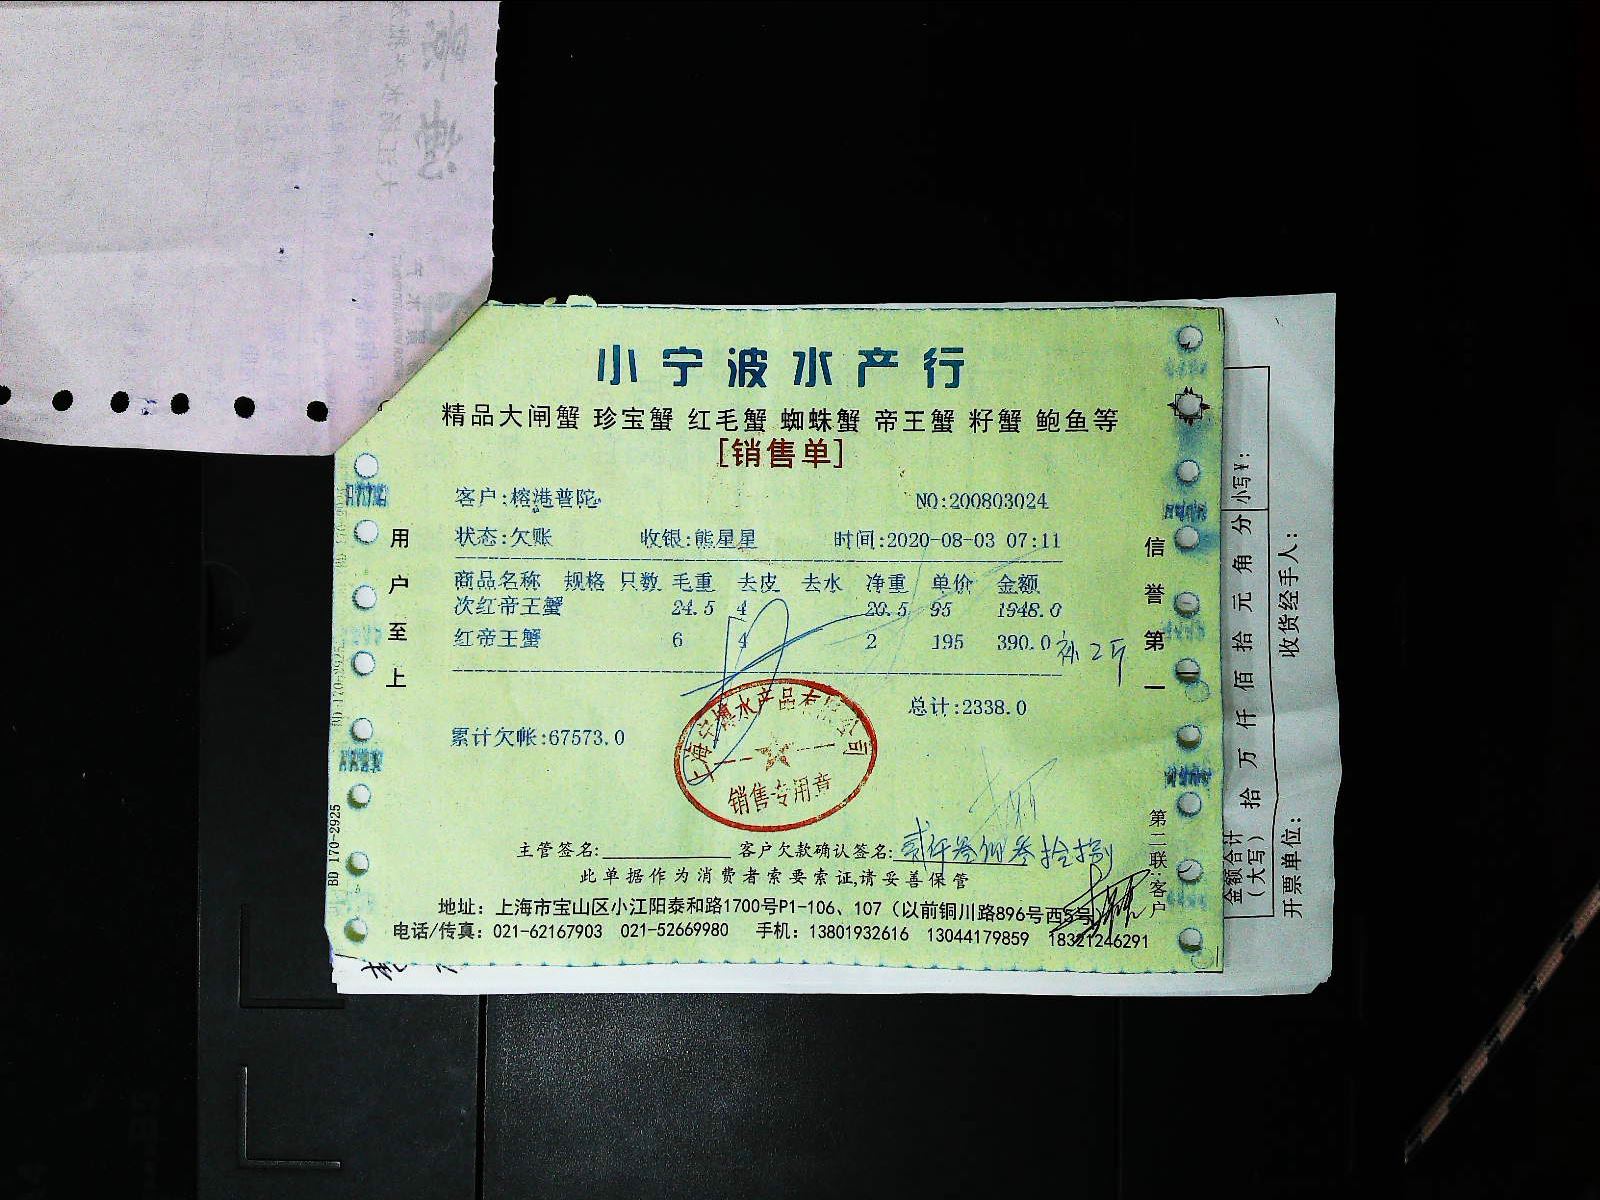 小宁波水产行
精品大闸蟹 珍宝蟹 红毛蟹 蜘蛛蟹 帝王蟹 籽蟹 鲍鱼等
[销售单]
客户:榕港普陀
NO:200803024
状态:欠账 收银:熊星星 时间:2020-08-03 07:11
商品名称 规格 只数 毛重 去皮 去水 净重 单价 金额
次红帝王蟹 24.5 4 20.5 95 1948.0
红帝王蟹 6 4 2 195 390.0 补2斤
总计:2338.0
累计欠帐:67573.0
销售专用章
主管签名: 客户欠款确认签名: 贰仟叁佰叁拾捌
此单据作为消费者索要索证,请妥善保管
地址: 上海市宝山区小江阳泰和路1700号P1-106、107（以前铜川路896号西5号）
电话/传真: 021-62167903 021-52669980 手机: 13801932616 13044179859 18321246291
用户至上
信誉第一
第二联:客户
BD 170-2925
小写¥:
金额合计（大写） 拾 万 仟 佰 拾 元 角 分
开票单位: 收货经手人: